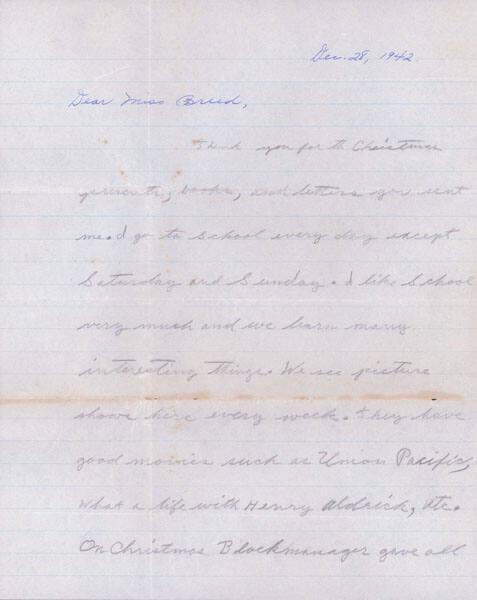 Dec. 28, 1942
Dear Miss Breed,
Thank you for th Christmas
presents, books, and letters you sent
me. I go to School every day except
Saturday and Sunday. I like School
very much and we learn many
interesting things. We see picture
shows here every week. They have
good movies such as Union Pacific,
What a life with Henry Aldrick, etc.
On Christmas Blockmanager gave all